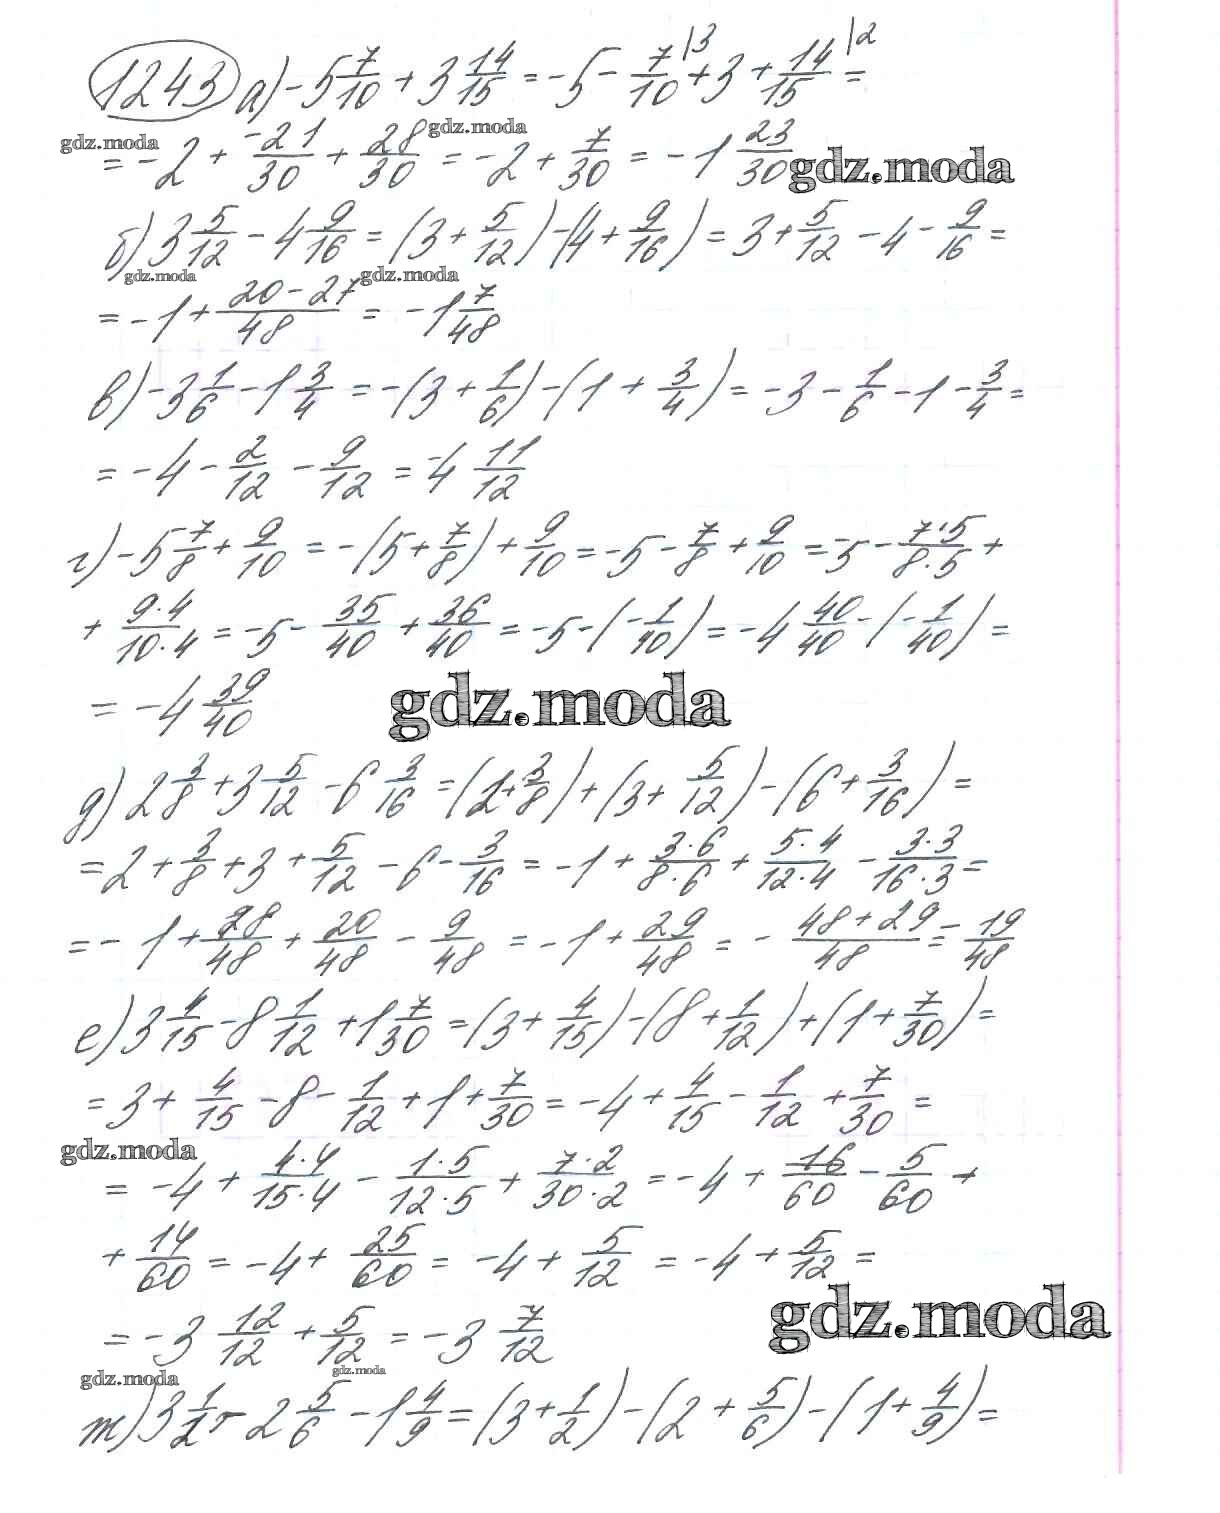 1243 а) -5 7/10 + 3 14/15 = -5 - 7/10 |3 + 3 + 14/15 |2 =
gdz.moda gdz.moda
= -2 + -21/30 + 28/30 = -2 + 7/30 = -1 23/30 gdz.moda
б) 3 5/12 - 4 9/16 = (3 + 5/12) - (4 + 9/16) = 3 + 5/12 - 4 - 9/16 =
gdz.moda gdz.moda
= -1 + 20-27/48 = -1 7/48
в) -3 1/6 - 1 3/4 = -(3 + 1/6) - (1 + 3/4) = -3 - 1/6 - 1 - 3/4 =
= -4 - 2/12 - 9/12 = -4 11/12
г) -5 7/8 + 9/10 = -(5 + 7/8) + 9/10 = -5 - 7/8 + 9/10 = -5 - 7·5/8·5 +
+ 9·4/10·4 = -5 - 35/40 + 36/40 = -5 - (-1/40) = -4 40/40 - (-1/40) =
= -4 39/40 gdz.moda
д) 2 3/8 + 3 5/12 - 6 3/16 = (2 + 3/8) + (3 + 5/12) - (6 + 3/16) =
= 2 + 3/8 + 3 + 5/12 - 6 - 3/16 = -1 + 3·6/8·6 + 5·4/12·4 - 3·3/16·3 =
= -1 + 18/48 + 20/48 - 9/48 = -1 + 29/48 = - 48+29/48 = - 19/48
е) 3 4/15 - 8 1/12 + 1 7/30 = (3 + 4/15) - (8 + 1/12) + (1 + 7/30) =
= 3 + 4/15 - 8 - 1/12 + 1 + 7/30 = -4 + 4/15 - 1/12 + 7/30 =
gdz.moda
= -4 + 4·4/15·4 - 1·5/12·5 + 7·2/30·2 = -4 + 16/60 - 5/60 +
+ 14/60 = -4 + 25/60 = -4 + 5/12 = -4 + 5/12 =
gdz.moda
= -3 12/12 + 5/12 = -3 7/12
gdz.moda gdz.moda
ж) 3 1/2 - 2 5/6 - 1 4/9 = (3 + 1/2) - (2 + 5/6) - (1 + 4/9) =